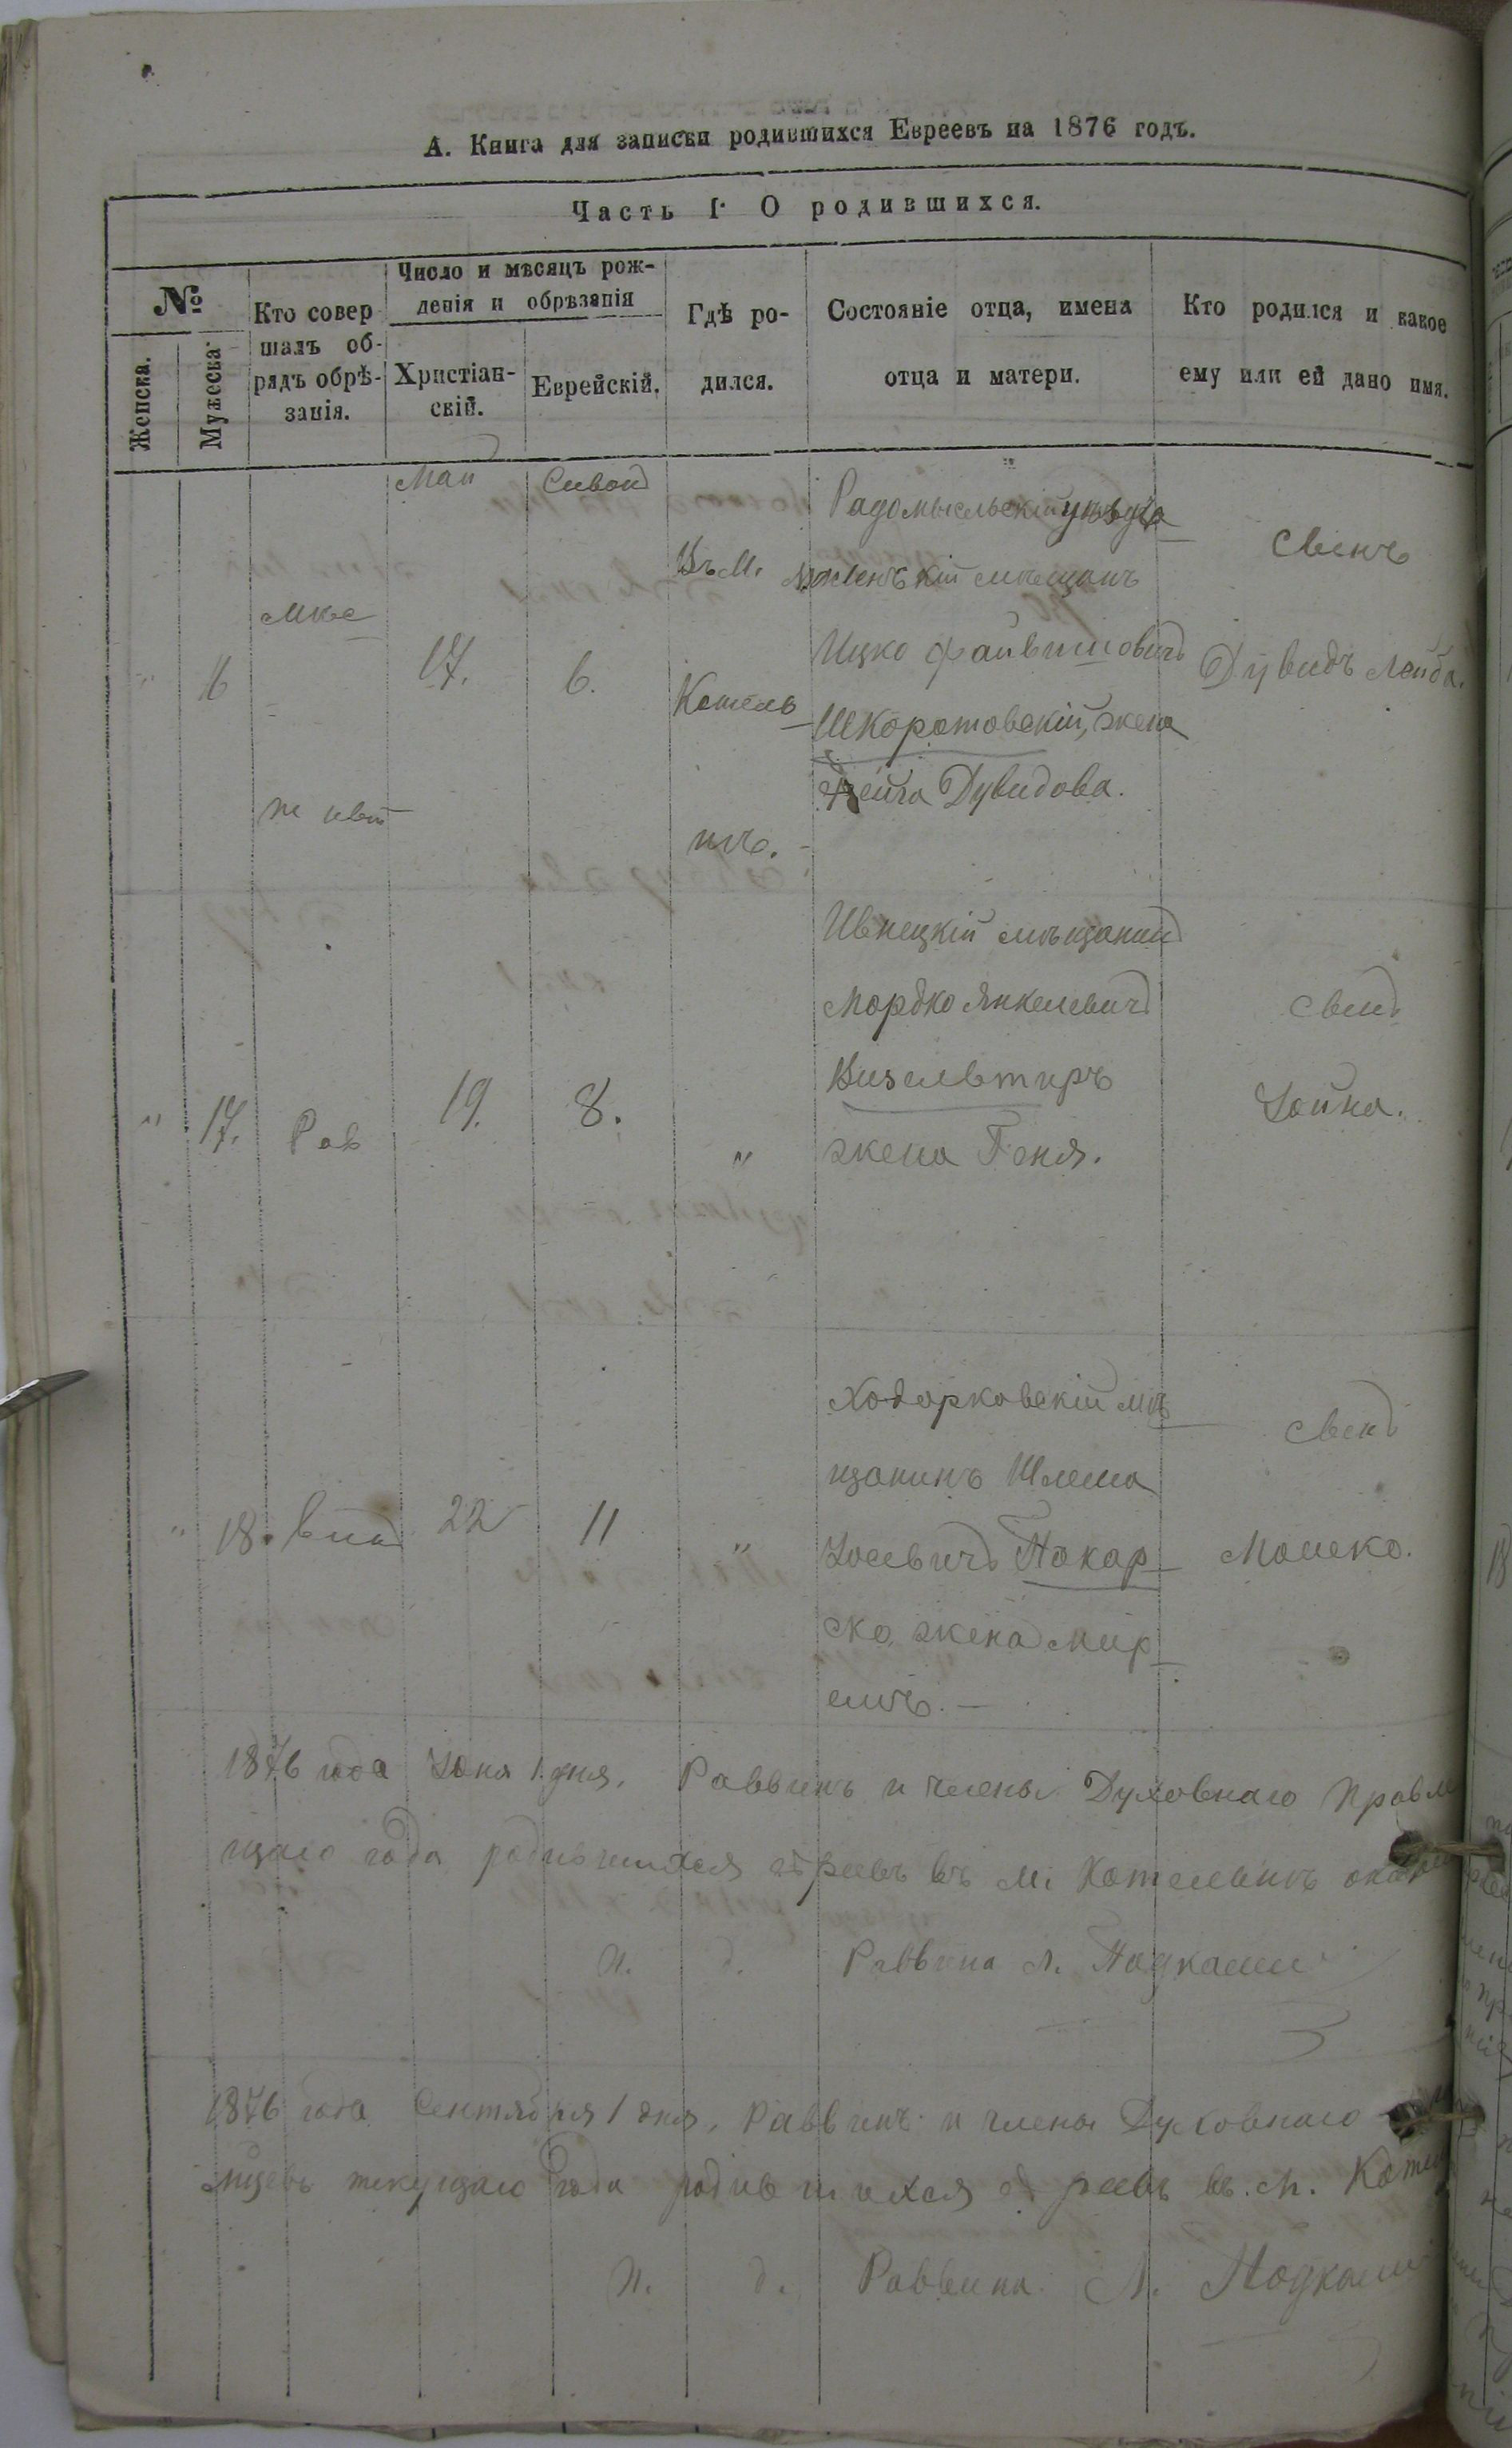 А. Книга для записки родившихся Евреевъ на 1876 годъ.
Часть I. О родившихся.
№
Женска.
Мужеска.
Кто совер-
шалъ об-
рядъ обрѣ-
занія.
Число и мѣсяцъ рож-
денія и обрѣзанія
Христіан-
скій.
Еврейскій.
Гдѣ ро-
дился.
Состояніе отца, имена
отца и матери.
Кто родился и какое
ему или ей дано имя.
Май
Сиванъ
" 16
17.
6.
Въ М.
Котель
нѣ.
Радомысльскій
мещанъ
Ицко Файвишовичъ
Шкоротовскій, жена
Фейга Дувидова.
Свинъ
Дувидъ Лейба.
" 17. Рав
19.
8.
"
Ивнецкій мѣщанинъ
Мордко Янкелевичъ
Визельтиръ
жена Геня.
Свинъ
Іойна.
" 18.
22
11
"
Ходорковскій мѣ
щанинъ Шлема
Іосевичъ Токар
ско, жена Мир
Свинъ
Мошко.
1876 года Іюня 1 дня. Раввинъ и члены Духовнаго Правле
щаго года родившихся евреевъ въ м. Котельнѣ
И. д. Раввина Л.
1876 года Сентября 1 дня. Раввинъ и члены Духовнаго
текущаго года родившихся евреевъ въ. м. Котель
И. д. Раввина Л.